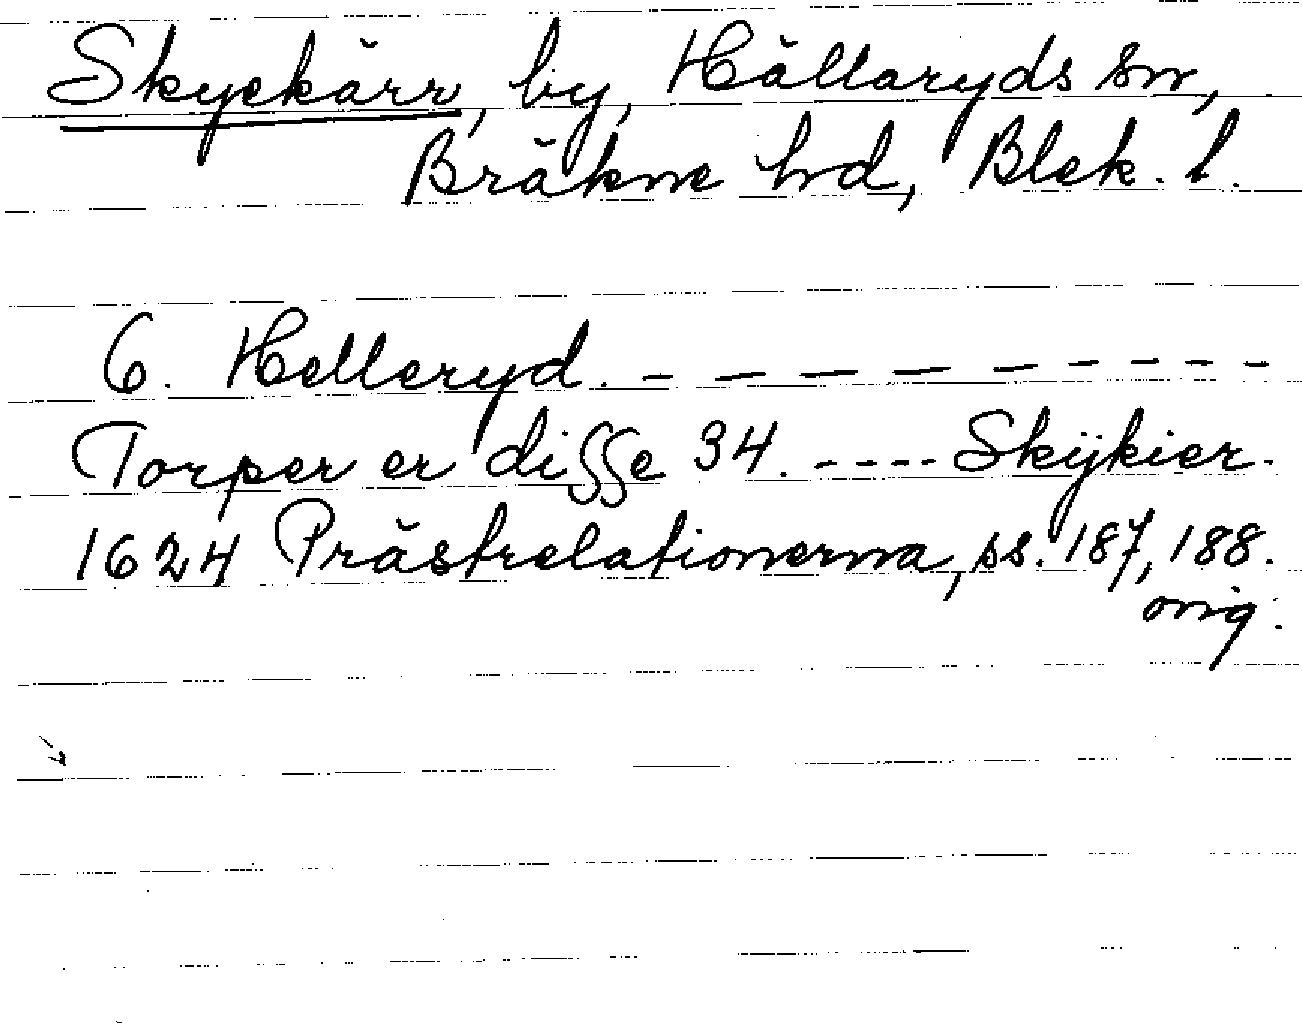 Skyekärr, by, Hällaryds sn,
Bräkne hd, Blek. l.
6. Helleryd. - - - - - - - - - -
Torper er disse 34. ---- Skÿkier.
1624 Prästrelationerna, ss. 187, 188.
orig.